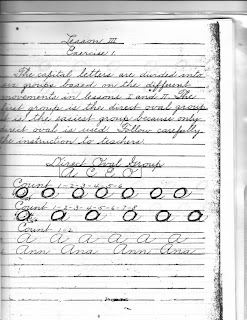 Lesson III
Exercise 1.
The capital letters are divided into
groups based on the different
movements in lessons I and II. The
group is the direct oval group
it is the easiest group because only
direct oval is used. Follow carefully
the instruction to teachers.
Direct Oval Group
A C E O
Count 1-2-3-4-5-6
O O O O O O O
Count 1-2-3-4-5-6-7-8
O O O O O O O
Count 1-2
A A A A A A
Ann Ana Ann Ana